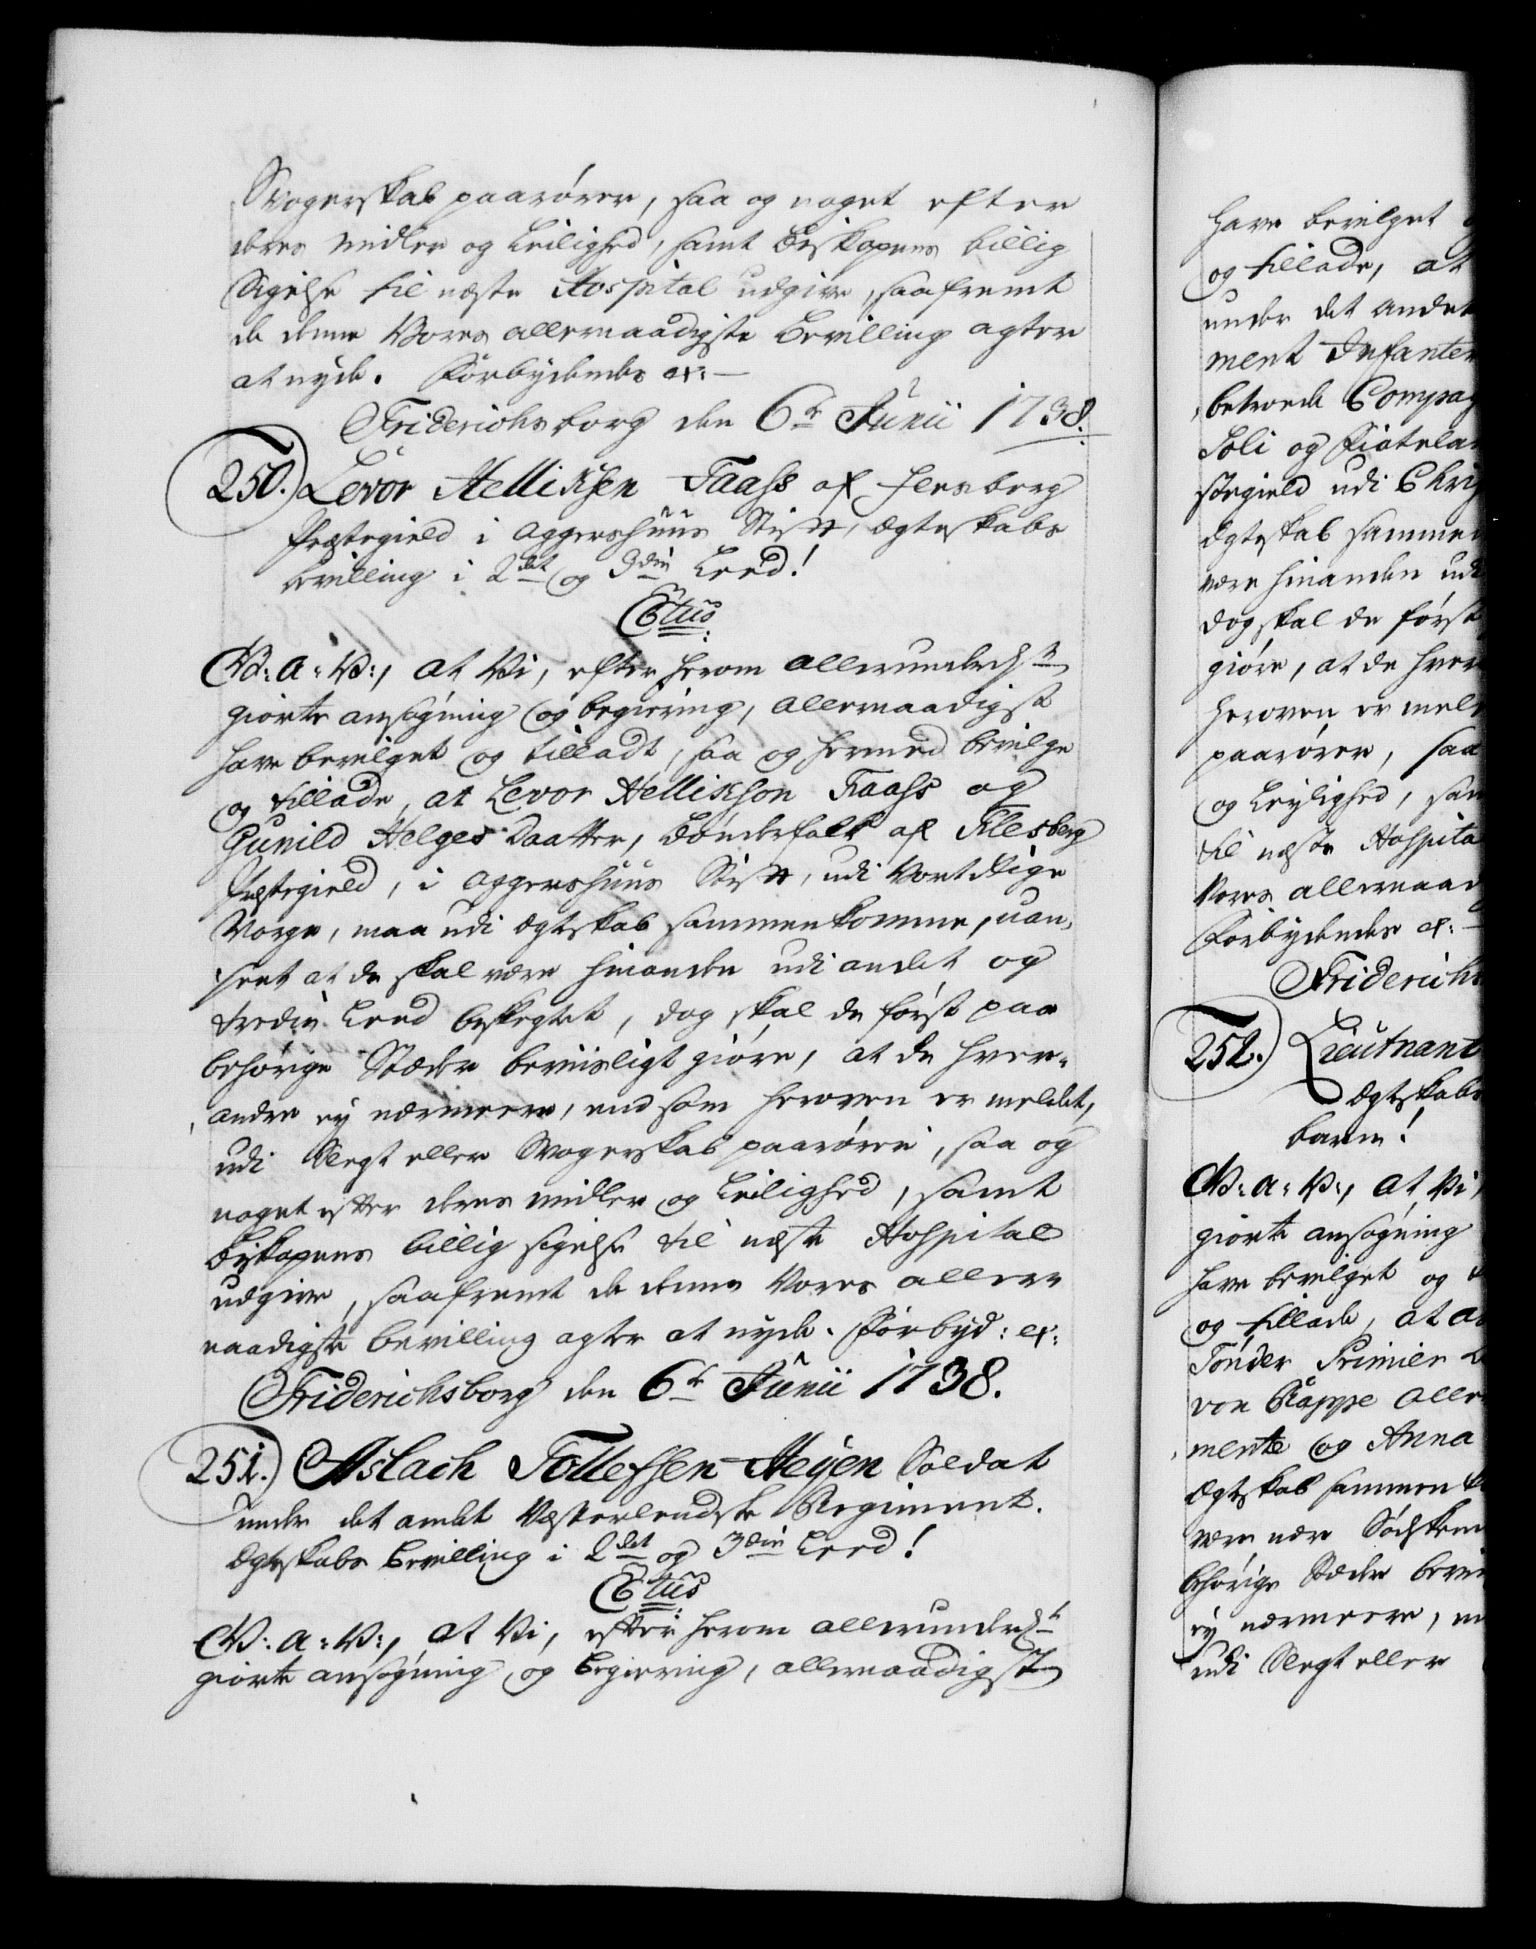 Svogerskab paarører, saa og noget efter
deres Midler og Leilighed, samt Biskopens billig
Sigelse til næste Hospital udgive, saafremt
de denne Vores allernaadigste Bevilling agter
at nyde. Forbydendes etc:
Friderichsborg den 6te Junii 1738.
250.) Levor Helliksen Faass af Flesberg
Præstegield i Aggershuus Stift, Ægteskabs
bevilling i 2det og 3die Leed!
C6tus
V: a: V:, at Vi, efter herom allerunderdste
giorte ansøgning og begiering, allernaadigst
have bevilget og tilladt, saa og hermed bevilge
og tillade, at Levor Hellikson Faass og
Gunild Helges Daatter, Bønderfolk af Flesberg
Præstegield, i Aggershuus Stift, udi Vort Rige
Norge, maa udi Ægteskab sammenkomme, uan-
seet at de skal være hinanden udi andet og
tredie Leed beslegtet, dog skal de først paa
behørige Stæder beviisligt giøre, at de hver-
andre ey nærmeere, end som heroven er meldet,
udi Slegt eller Svogerskab paarører, saa og
noget efter deres midler og Leilighed, samt
Biskopens billig sigelse til næste Hospital
udgive, saafremt de denne Vores aller-
naadigste bevilling agter at nyde. Forbyd: etc:
Friderichsborg den 6te Junii 1738.
251.) Aslach Tollefsen Heyen Soldat
under det andet Vesterlendske Regiment.
Ægteskabs Bevilling i 2det og 3die Leed!
C6tus
V: a: V:, at Vi, efter herom allerunderdste
giorte ansøgning og Begiering, allernaadigst
have bevilget
og tillade, at
under det andet
ment Infanter
betroede Compag
Soli og
stegield udi Chri
Ægteskab sammen
være hinanden udi
dog skal de først
giøre, at de hver
heroven er meld
paarører, saa
og Leylighed, sam
til næste Hospita
Vores allernaad
Forbydendes etc:
Friderichs
252.) Lieutnant
Ægteskabs
barn!
V: a: V:, at Vi,
giorte ansøgning
have bevilget og
og tillade, at
Tønder Primier
von allern
mente og Anna
Ægteskab sammen
være nær Sødsken
behørige Stæder bevi
ey nærmeere, en
udi Slegt eller